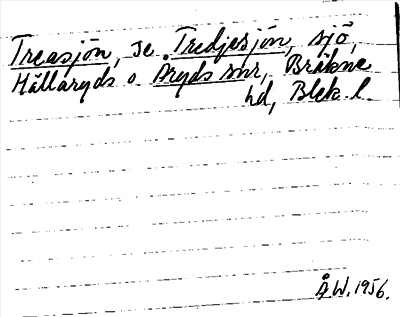 Treasjön, se Tredjesjön, sjö,
Hällaryds o. Åryds snr, Bräkne
hd, Blek. l.
Å W. 1956.